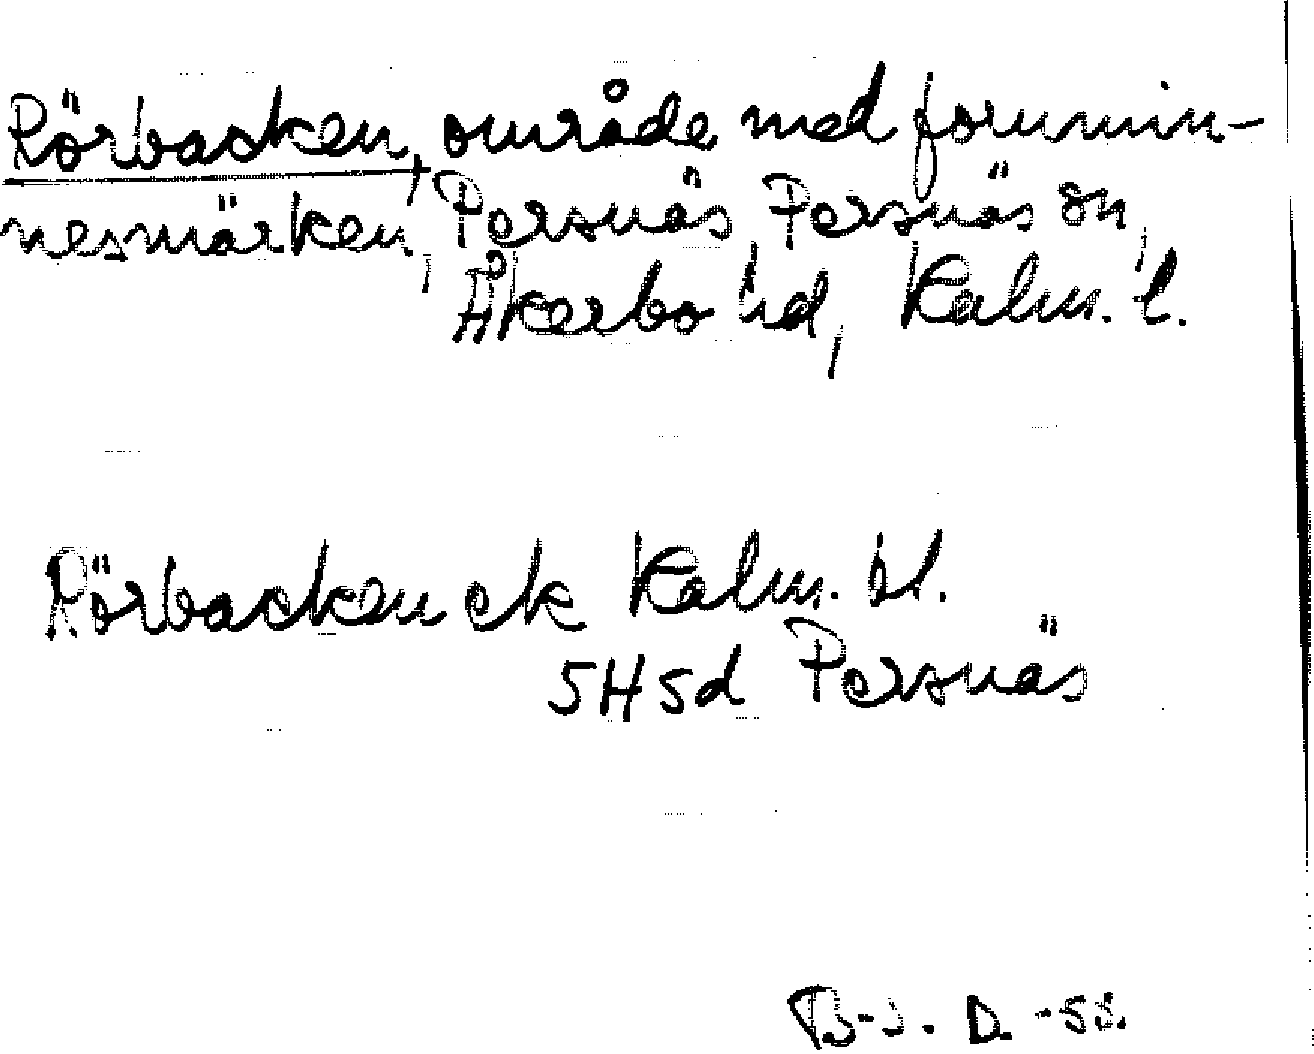 Rörbacken, område med fornmin-
nesmärken, Persnäs Persnäs sn,
Åkerbo hd, Kalm. l.
Rörbacken ek Kalm. bl.
5H5d Persnäs
B-J. D. -55.